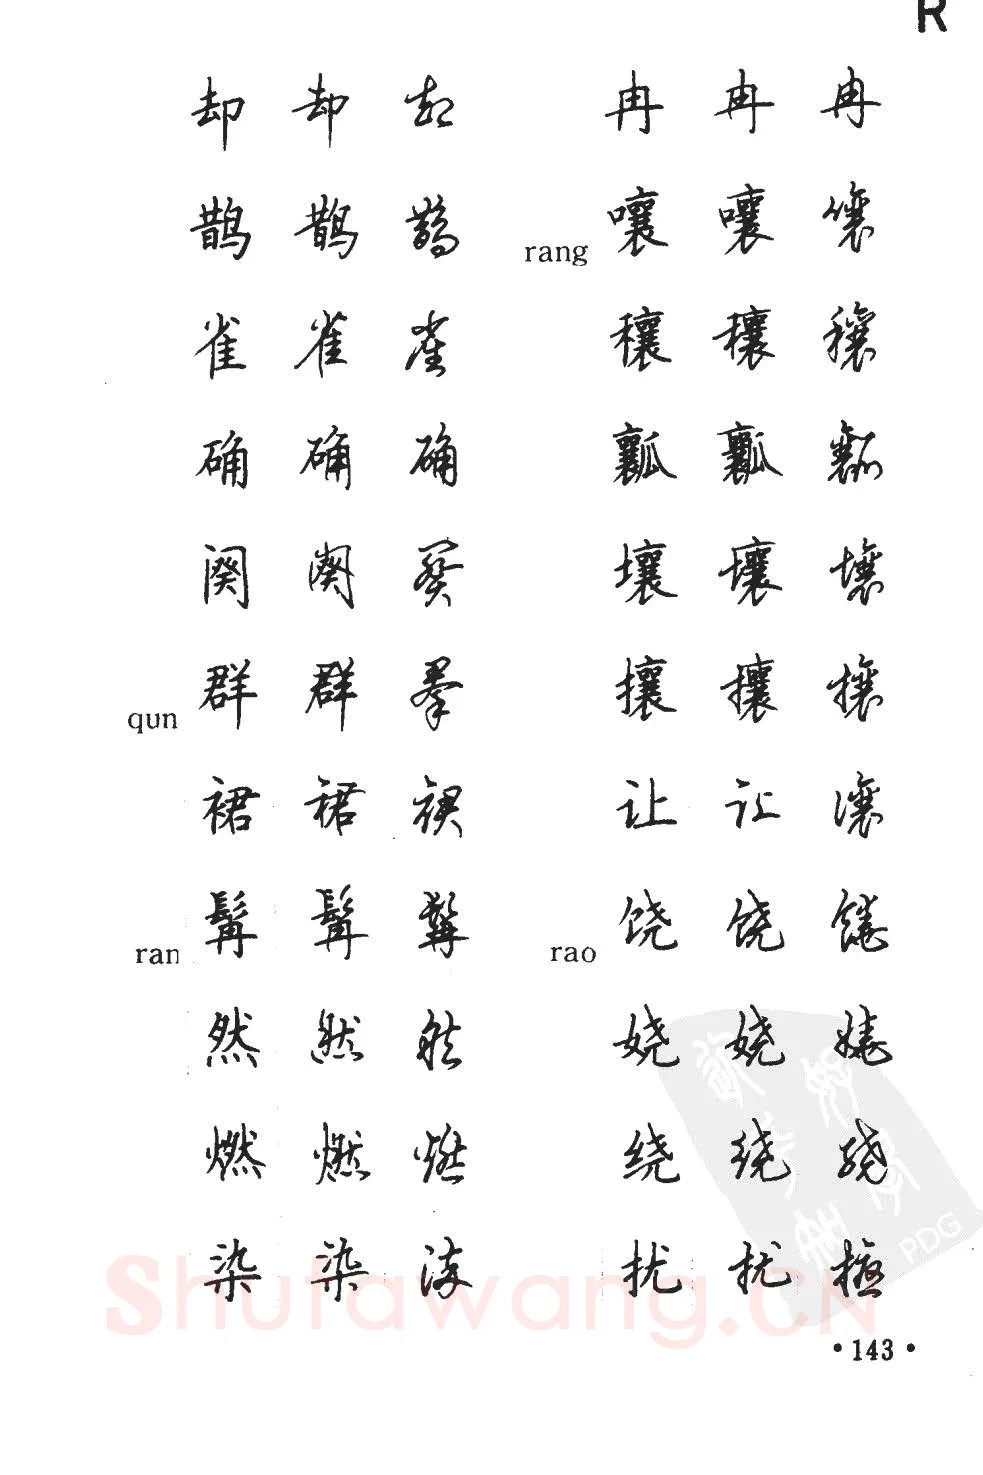 R
却 却 却
鹊 鹊 鹊
雀 雀 雀
确 确 确
阕 阕 阕
qun 群 群 群
裙 裙 裙
ran 髯 髯 髯
然 然 然
燃 燃 燃
染 染 染
冉 冉 冉
rang 嚷 嚷 嚷
穰 穰 穰
瓤 瓤 瓤
壤 壤 壤
攘 攘 攘
让 让 讓
rao 饶 饶 饒
娆 娆 嬈
绕 绕 绕
扰 扰 擾
Shufawang.CN
PDG
·143·